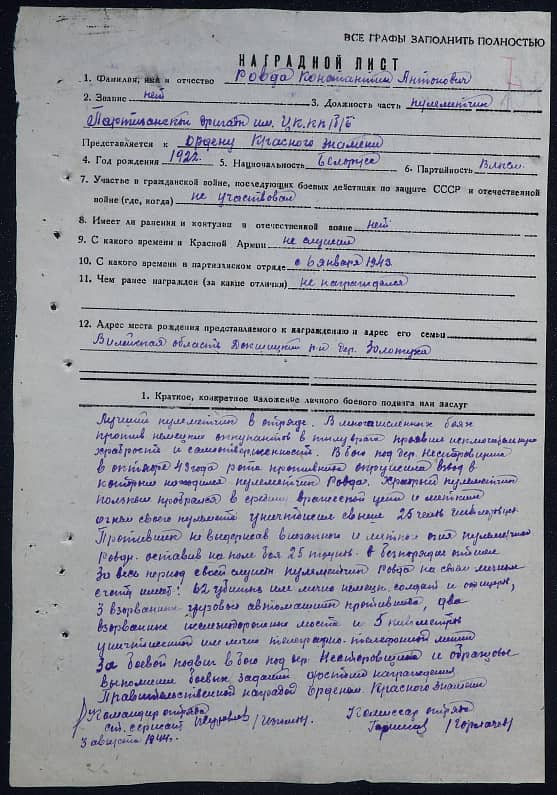 ВСЕ ГРАФЫ ЗАПОЛНИТЬ ПОЛНОСТЬЮ
НАГРАДНОЙ ЛИСТ
1. Фамилия, имя и отчество Ровда Константин Антонович
2. Звание нет 3. Должность часть пулеметчик
Партизанской бригады им. ЦК КП/б/Б
Представляется к Ордену Красного знамени
4. Год рождения 1922. 5. Национальность Белорус 6. Партийность
7. Участие в гражданской войне, последующих боевых действиях по защите СССР и отечественной
войне (где, когда) не участвовал
8. Имеет ли ранения и контузии в отечественной войне нет
9. С какого времени в Красной Армии не служил
10. С какого времени в партизанском отряде с 6 января 1943
11. Чем ранее награжден (за какие отличия) не награждался
12. Адрес места рождения представляемого к награждению и адрес его семьи
Вилейская область Докшицкий р-н дер. Золотуха
1. Краткое, конкретное изложение личного боевого подвига или заслуг
Лучший пулеметчик в отряде. В многочисленных боях
против немецких оккупантов в тылу врага проявил исключительную
храбрость и самоотверженность. В бою под дер. Нестеровщина
в октябре 43 года рота противника окружила взвод в
котором находился пулеметчик Ровда. Храбрый пулеметчик
ползком пробрался в средину вражеской цепи и метким
огнем своего пулемета уничтожил свыше 25
Противник не выдержав внезапного и меткого огня пулеметчика
Ровда. оставив на поле боя 25 трупов. в беспорядке отошел
За весь период своей службы пулеметчик Ровда на своем личном
счету имеет: 62 убитых им лично немецк. солдат и офицеров,
3 взорванных грузовых автомашин противника, два
взорванных железнодорожных моста и 5 километров
уничтоженной им лично телеграфно-телефонной линии
За боевой подвиг в бою под дер. Нестеровщина и образцовое
выполнение боевых заданий достоин награждения
Правительственной наградой Орденом Красного знамени
Командир отряда Комиссар отряда
ст. сержант /Горлачев/
3 августа 1944г.